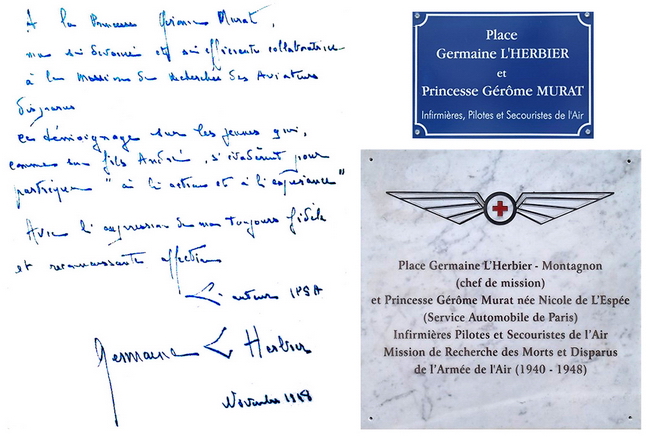 À la Princesse Gérôme Murat,
ma si dévouée et si efficiente collaboratrice
à la Mission de Recherches des Aviateurs
disparus
ce témoignage sur les jeunes qui,
comme son fils André, s'évadèrent pour
participer "à l'action et à l'espérance"
Avec l'expression de mon toujours fidèle
et reconnaissante affection
L'auteur IPSA
Germaine L'Herbier
Novembre 1948
Place
Germaine L'HERBIER
et
Princesse Gérôme MURAT
Infirmières, Pilotes et Secouristes de l'Air
Place Germaine L'Herbier - Montagnon
(chef de mission)
et Princesse Gérôme Murat née Nicole de L'Espée
(Service Automobile de Paris)
Infirmières Pilotes et Secouristes de l'Air
Mission de Recherche des Morts et Disparus
de l'Armée de l'Air (1940 - 1948)